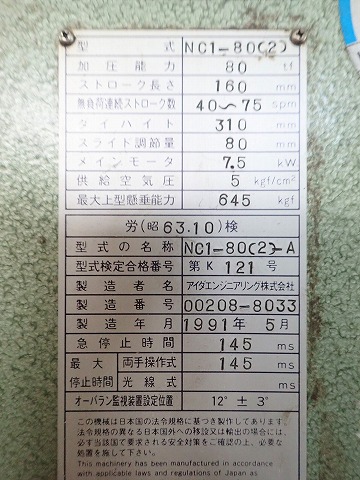 型式 NC1-80(2)
加圧能力 80 tf
ストローク長さ 160 mm
無負荷連続ストローク数 40〜75 spm
ダイハイト 310 mm
スライド調節量 80 mm
メインモータ 7.5 kW
供給空気圧 5 kgf/cm²
最大上型懸垂能力 645 kgf
労(昭63.10)検
型式の名称 NC1-80(2)-A
型式検定合格番号 第K 121 号
製造者名 アイダエンジニアリング株式会社
製造番号 00208-8033
製造年月 1991年 5月
急停止時間 145 ms
最大停止時間 両手操作式 145 ms
光線式 ms
オーバラン監視装置設定位置 12° ± 3°
この機械は日本国の法令規格に基づき製作しております。
法令規格の異なる日本国外への移設又は輸出の場合には、
必ず当該国で要求される安全対策をご確認の上、必要な
処置を施して下さい。
This machinery has been manufactured in accordance
with applicable laws and regulations of Japan as